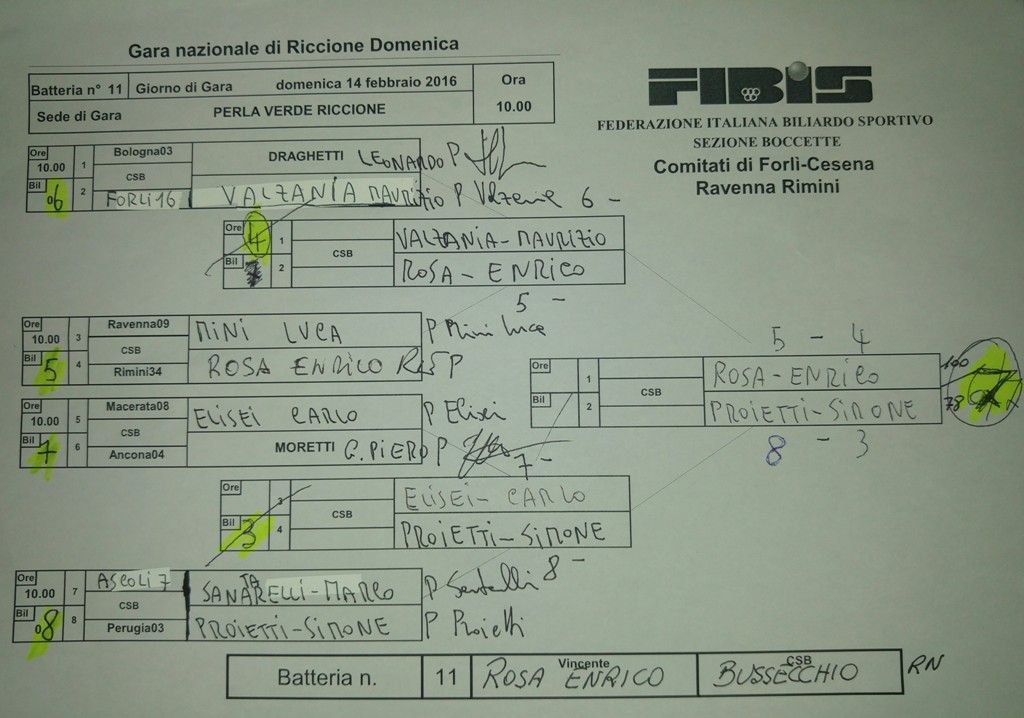 Gara nazionale di Riccione Domenica
Batteria n° 11 Giorno di Gara domenica 14 febbraio 2016 Ora
Sede di Gara PERLA VERDE RICCIONE 10.00
FIBiS
FEDERAZIONE ITALIANA BILIARDO SPORTIVO
SEZIONE BOCCETTE
Comitati di Forlì-Cesena
Ravenna Rimini
Ore 10.00 1 Bologna03 DRAGHETTI LEONARDO P
CSB
Bil 06 2 FORLì 16 VALZANIA MAURIZIO P 6 -
Ore 4 1 VALZANIA-MAURIZIO
CSB
Bil 2 ROSA-ENRICO
5 -
Ore 10.00 3 Ravenna09 MINI LUCA P Mini Luca
CSB
Bil 5 4 Rimini34 ROSA ENRICO P
5 - 4
Ore 1 ROSA-ENRICO 100
CSB
Bil 2 PROIETTI-SIMONE 78
8 - 3
Ore 10.00 5 Macerata08 ELISEI CARLO P Elisei
CSB
Bil 7 6 Ancona04 MORETTI G.PIERO P
7 -
Ore 3 ELISEI-CARLO
CSB
Bil 3 4 PROIETTI-SIMONE
8 -
Ore 10.00 7 ASCOLI 7 SANTARELLI-MARCO P
CSB
Bil 08 8 Perugia03 PROIETTI-SIMONE P Proietti
Batteria n. 11 Vincente ROSA ENRICO CSB BUSSECCHIO RN